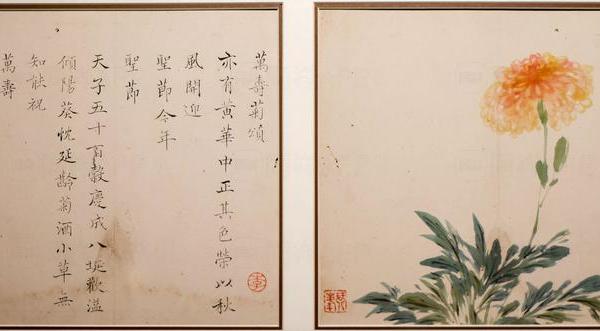 萬壽菊頌
亦有黃華中正其色榮以秋
風開迎
聖節今年
聖節
天子五十百穀慶成八埏歡溢
傾陽葵忱延齡菊酒小草無
知能祝
萬壽